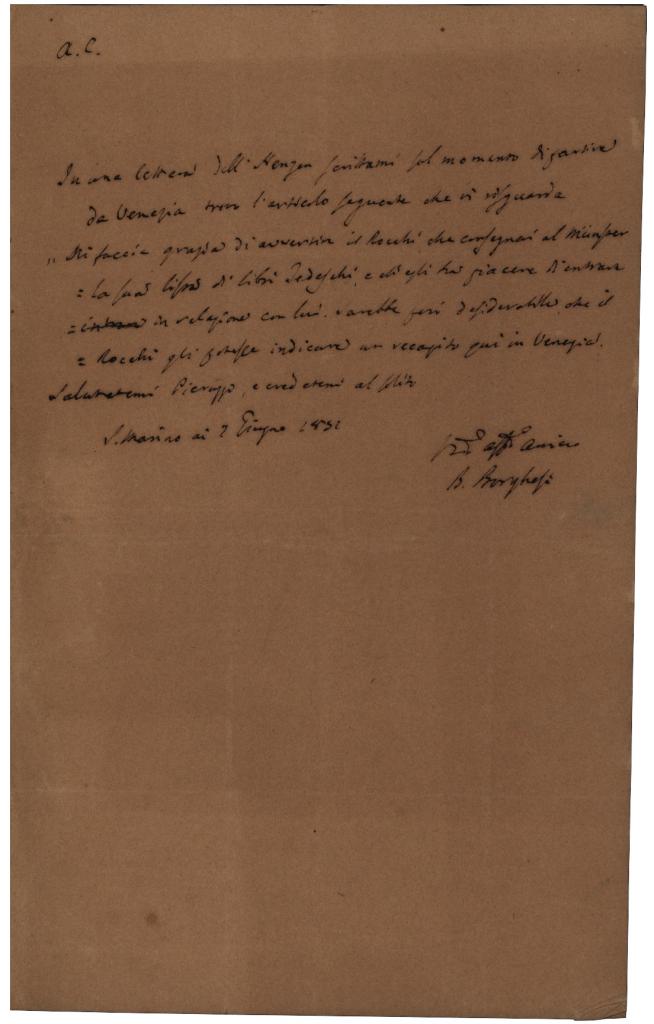 A. C.
In una lettera dell'Henzen scrittami sul momento di partire
da Venezia trovo l'articolo seguente che vi risguarda
„ Mi faccia grazia di avvertire il Rocchi, che consegnai al Münster
= la sua lista di libri Tedeschi, e ch'egli ha piacere d'entrare
= in relazione con lui. Sarebbe però desiderabile che il
= Rocchi gli potesse indicare un recapito qui in Venezia.
Salutatemi Pieruzzo, e credetemi al solito
S. Marino ai 7 Giugno
affmo amico
B. Borghesi